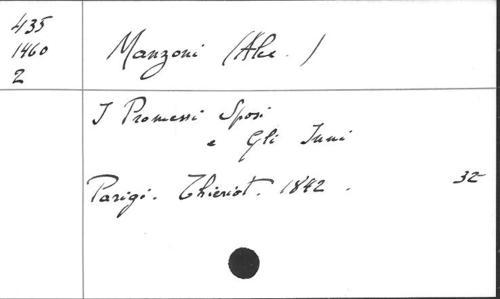 435
1460
2
Manzoni (Ale.)
I Promessi Sposi
e Gli Inni
Parigi. Thieriot. 1842.
32